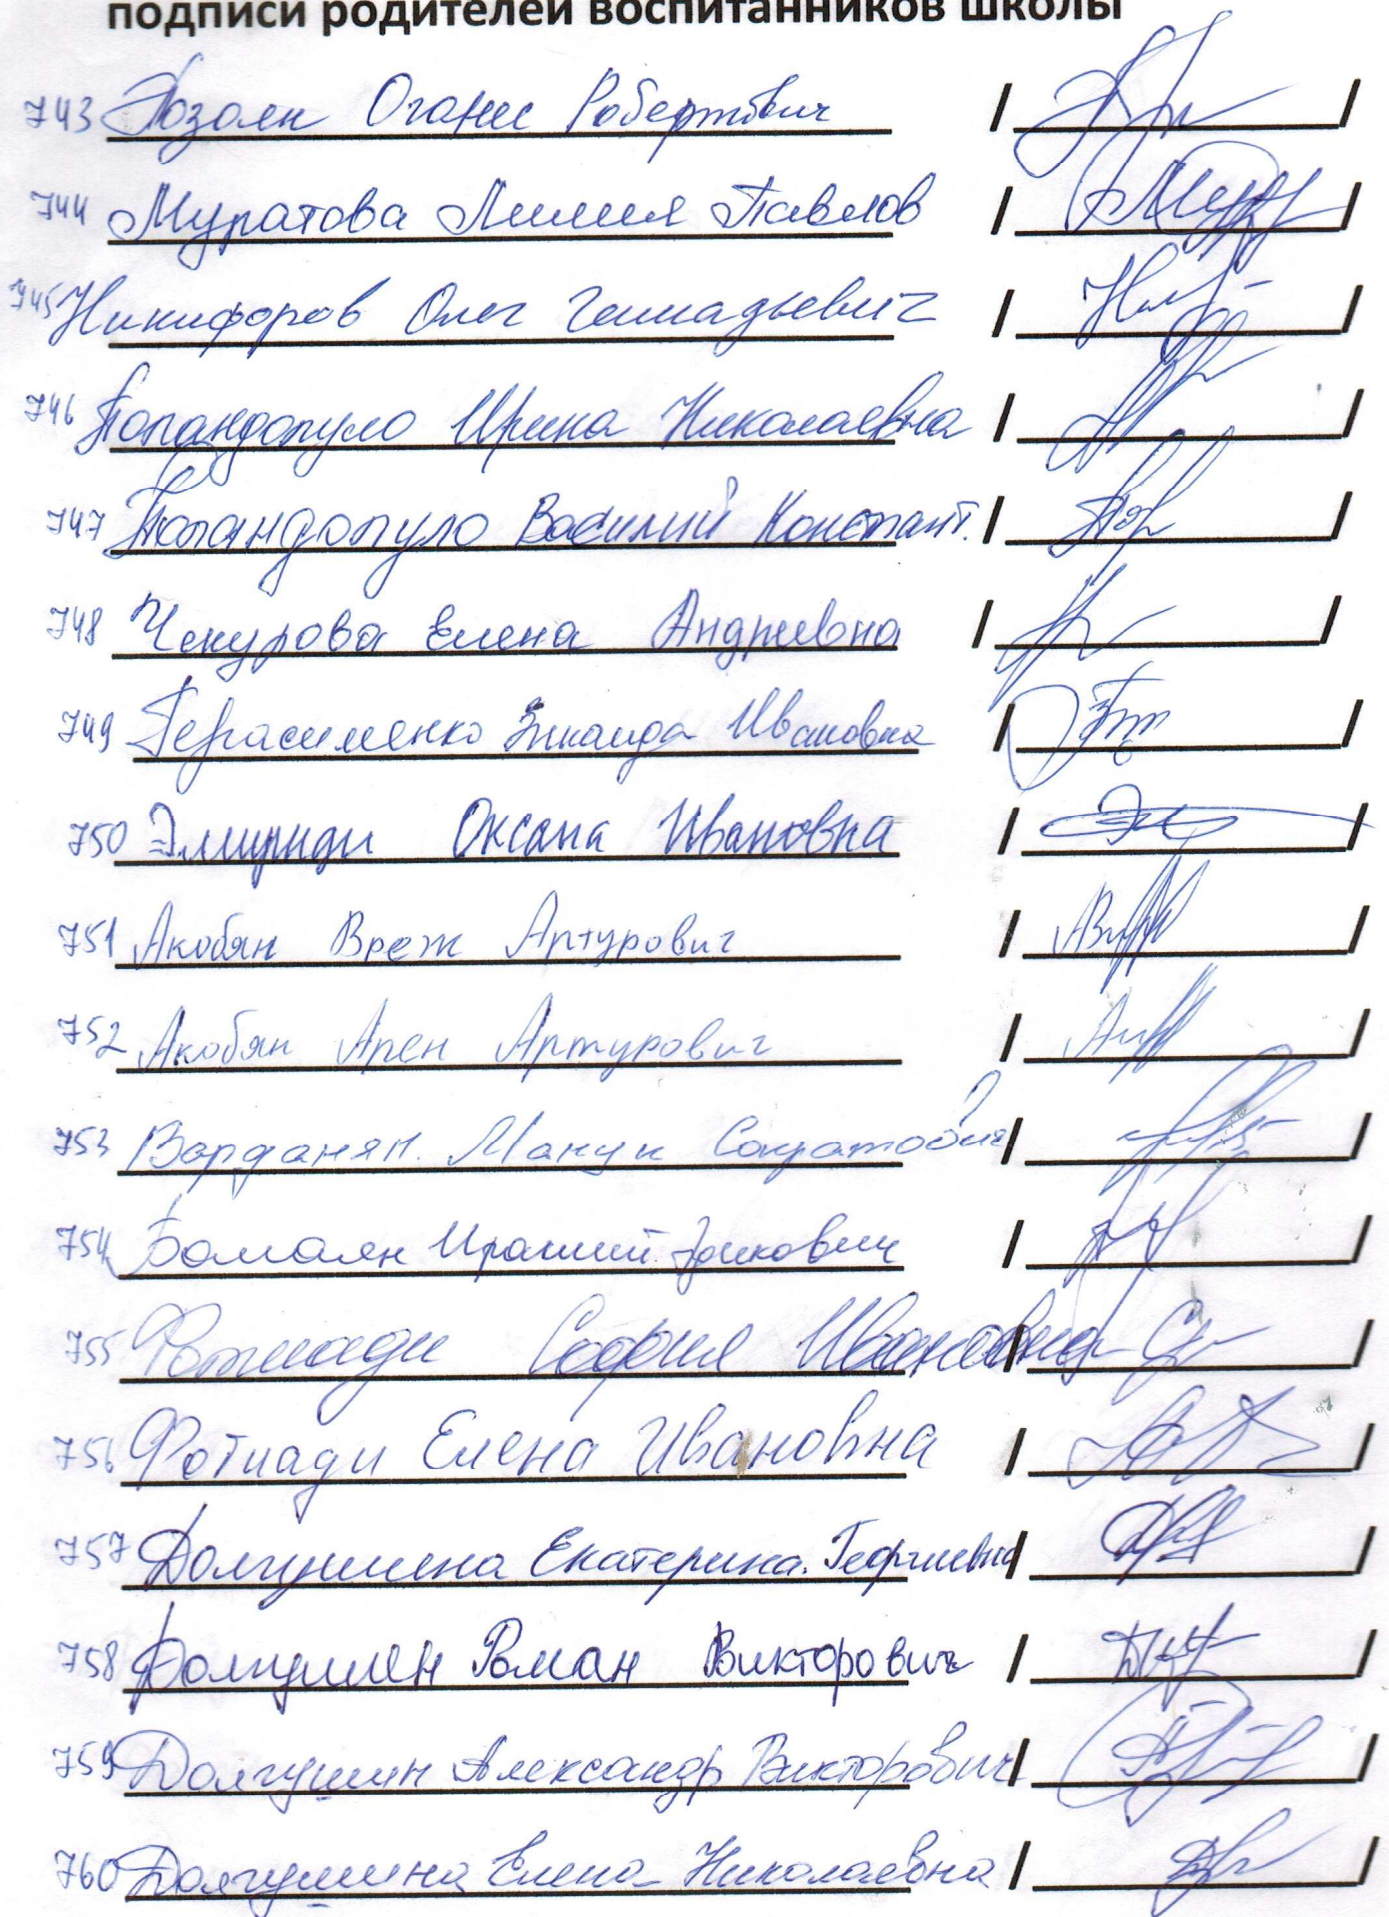 подписи родителей воспитанников школы
743 Оганес Робертович / /
744 Муратова Лилия Павлов / /
745 Никифоров Олег Геннадьевич / /
746 Попандопуло Ирина Николаевна / /
747 Попандопуло Василий Констант. / /
748 Чекурова Елена Андреевна / /
749 Герасименко Зинаида Ивановна / /
750 Элмириди Оксана Ивановна / /
751 Акобян Вреж Артурович / /
752 Акобян Арен Артурович / /
753 Варданян. Манук Сократович / /
754 / /
755 Фотиади София Ивановна / /
756 Фотиади Елена Ивановна / /
757 Долгушина Екатерина. Георгиевна / /
758 Долгушин Роман Викторович / /
759 Долгушин Александр Викторович / /
760 Долгушина Елена Николаевна / /